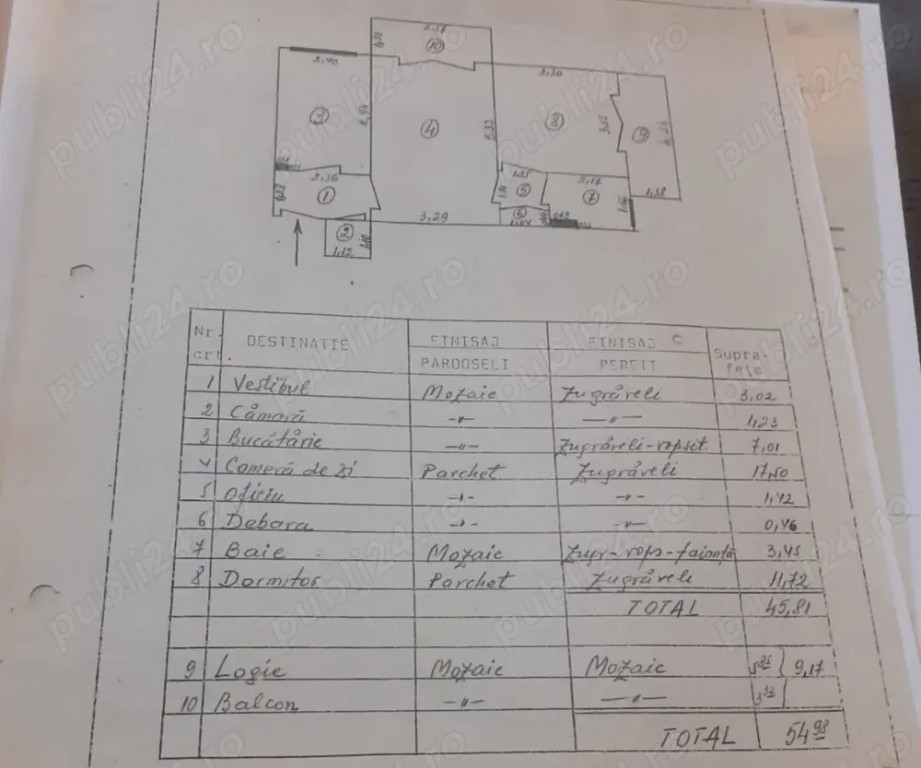 publi24.ro
2,57
1,26
10
2,40
3,30
3
4
8
9
2,94
5,33
3,55
4,24
2,36
1,35
2,17
1
5
7
1,38
6
1,04
3,29
2
1,10
1,12
Nr. crt. DESTINATIE FINISAJ PARDOSELI FINISAJ PERETI Supra-fețe
1 Vestibul Mozaic Zugrăveli 3,02
2 Cămară -"- -"- 1,23
3 Bucătărie -"- Zugrăveli-vopsit. 7,01
4 Cameră de zi Parchet Zugrăveli 17,50
5 Oficiu -"- -"- 1,42
6 Debara -"- -"- 0,46
7 Baie Mozaic Zugr-vops-faianță 3,45
8 Dormitor Parchet Zugrăveli 11,72
TOTAL 45,81
9 Logie Mozaic Mozaic 9,17
10 Balcon -"- -"-
TOTAL 54,98